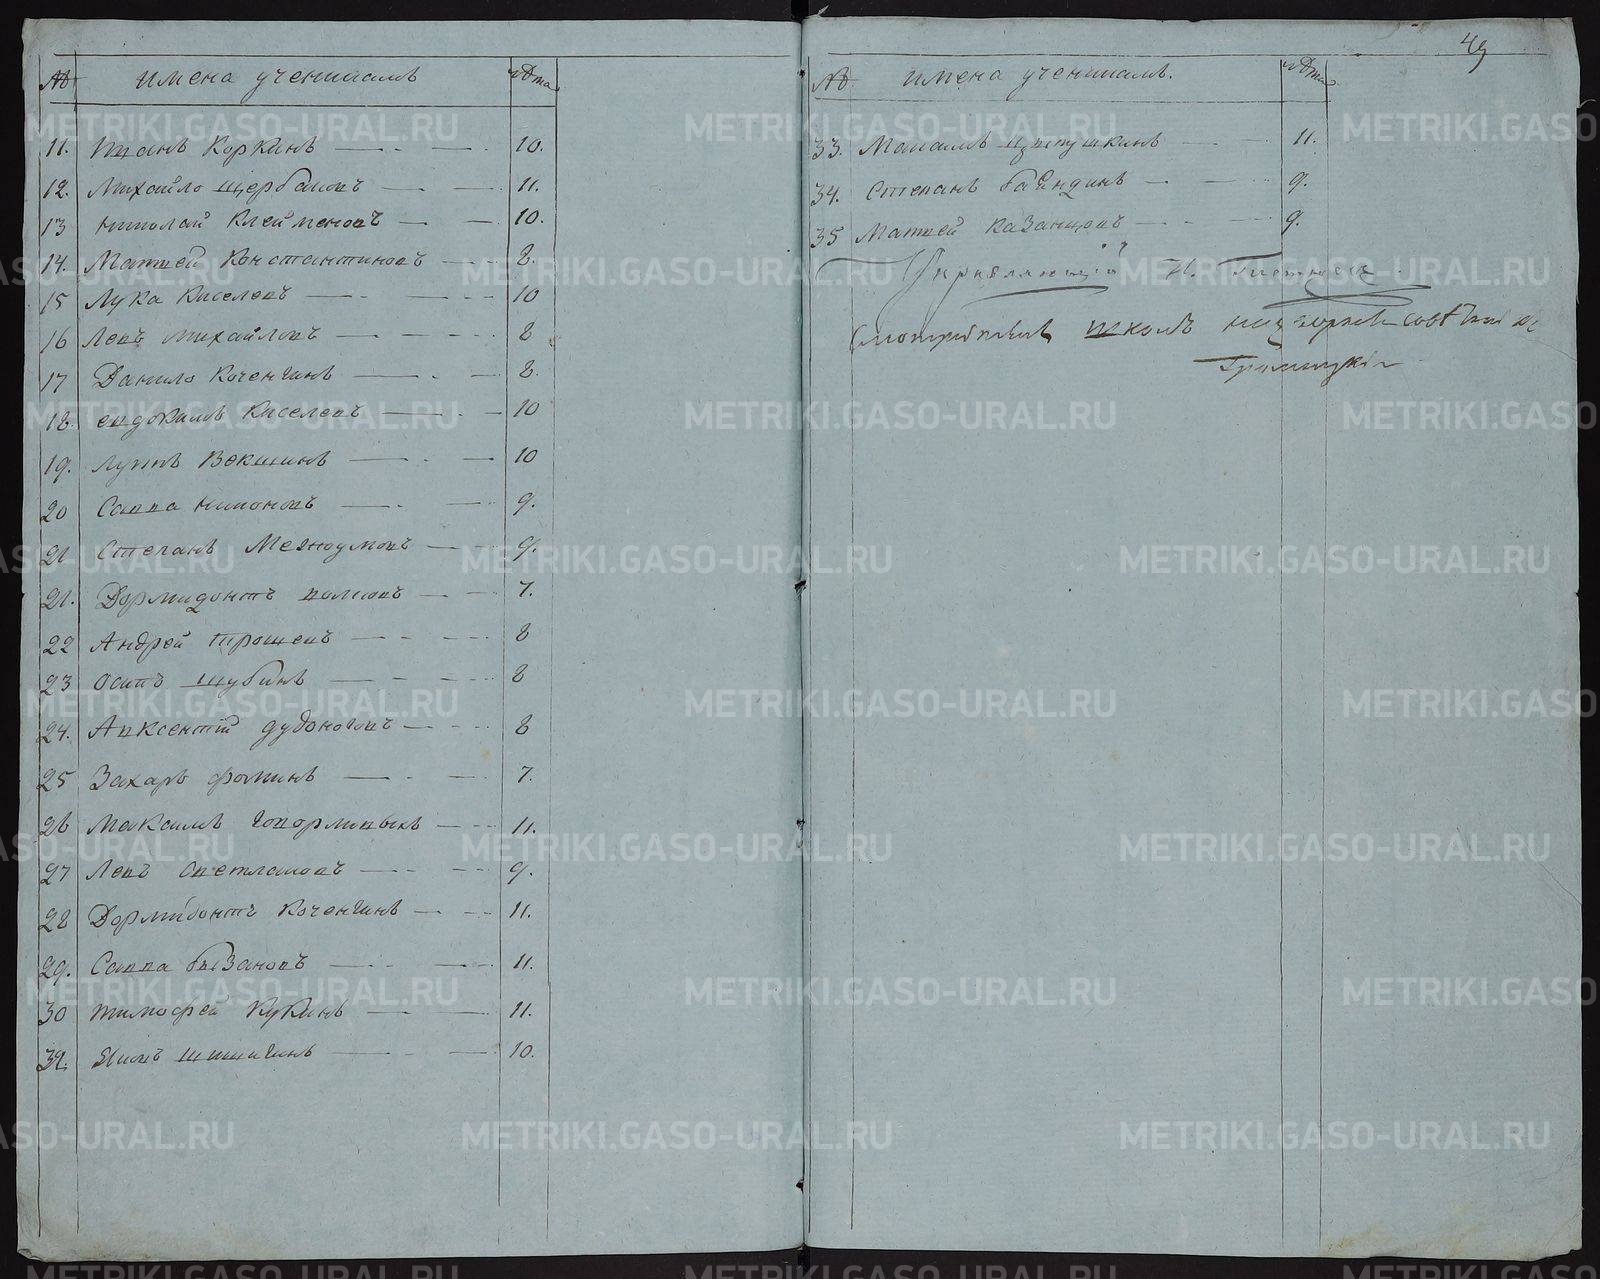 49
№ имена ученикамъ лѣта
11. Иванъ Коркинъ 10.
12. Михайло щербаковъ 11.
13 николай Клейменовъ 10.
14. Матвей Константиновъ 8.
15 Лука Киселевъ 10
16 Левъ михайловъ 8
17 Данило Коченгинъ 8.
18 евдокимъ Киселевъ 10
19. Векшинъ 10
20 Савва никоновъ 9.
21 Степанъ 9.
21. Дормидонтъ поповъ 7.
22 Андрей трошевъ 8
23 осипъ шубинъ 8
24. Авксентий 8
25 Захаръ фоминъ 7.
26 Максимъ 11.
27 Левъ светлаковъ 9.
28 Дормидонтъ Коченгинъ 11.
29. Савва 11.
30 тимофей Кукинъ 11.
шишигинъ 10.
№ имена ученикамъ. лѣта
33. 11.
34. Степанъ 9.
35 Матвей Казанцовъ 9.
Управляющий И.
Смотритель школъ
METRIKI.GASO-URAL.RU